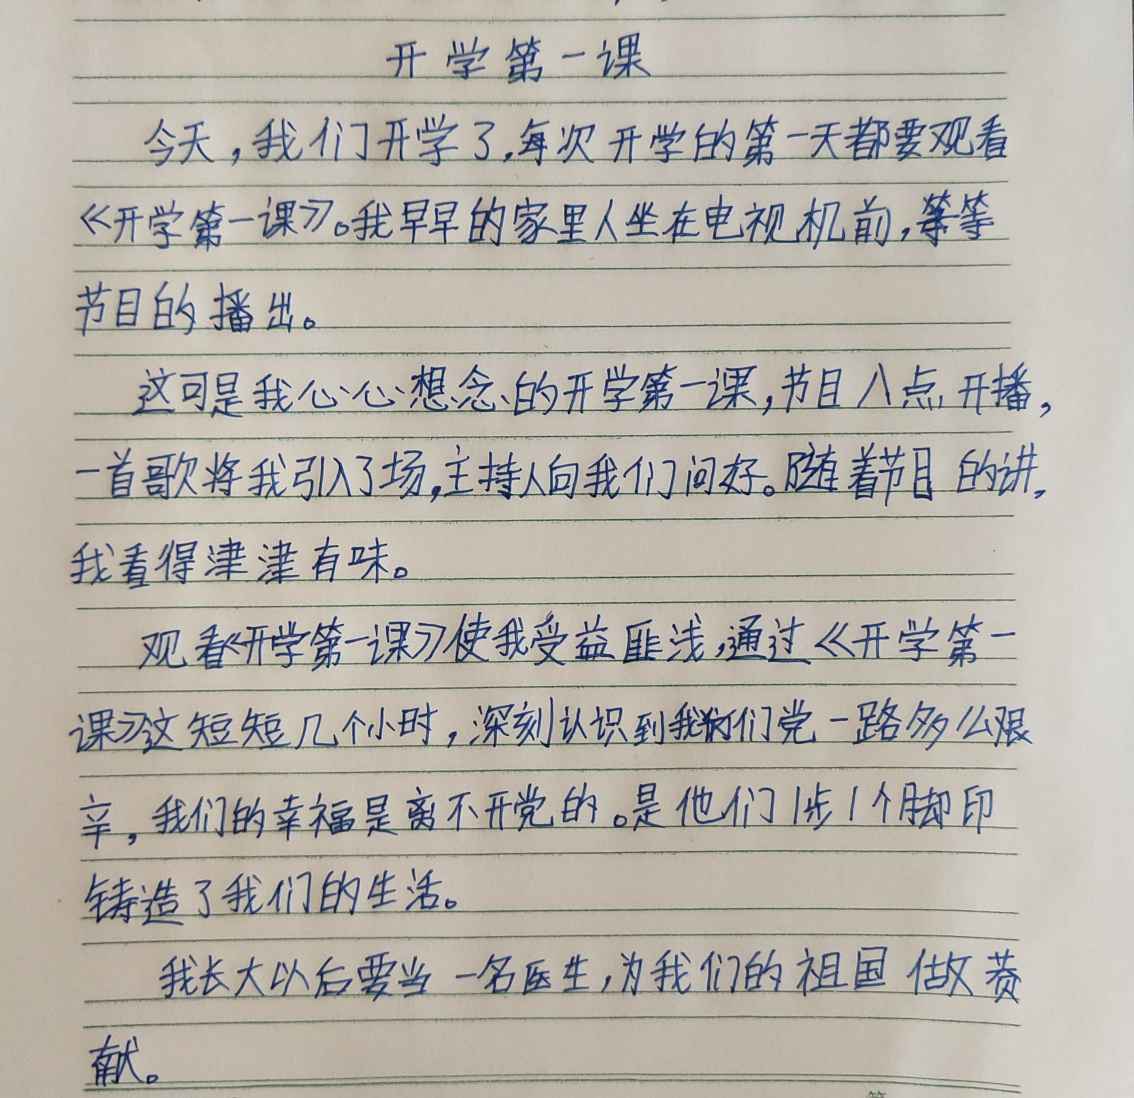 开学第一课
今天，我们开学了，每次开学的第一天都要观看
《开学第一课》。我早早的家里人坐在电视机前，等等
节目的播出。
这可是我心心想念的开学第一课，节目八点开播，
一首歌将我引入了场，主持人向我们问好。随着节目的讲，
我看得津津有味。
观看《开学第一课》使我受益匪浅，通过《开学第一
课》这短短几个小时，深刻认识到我们党一路多么艰
辛，我们的幸福是离不开党的。是他们1步1个脚印
铸造了我们的生活。
我长大以后要当一名医生，为我们的祖国做贡
献。